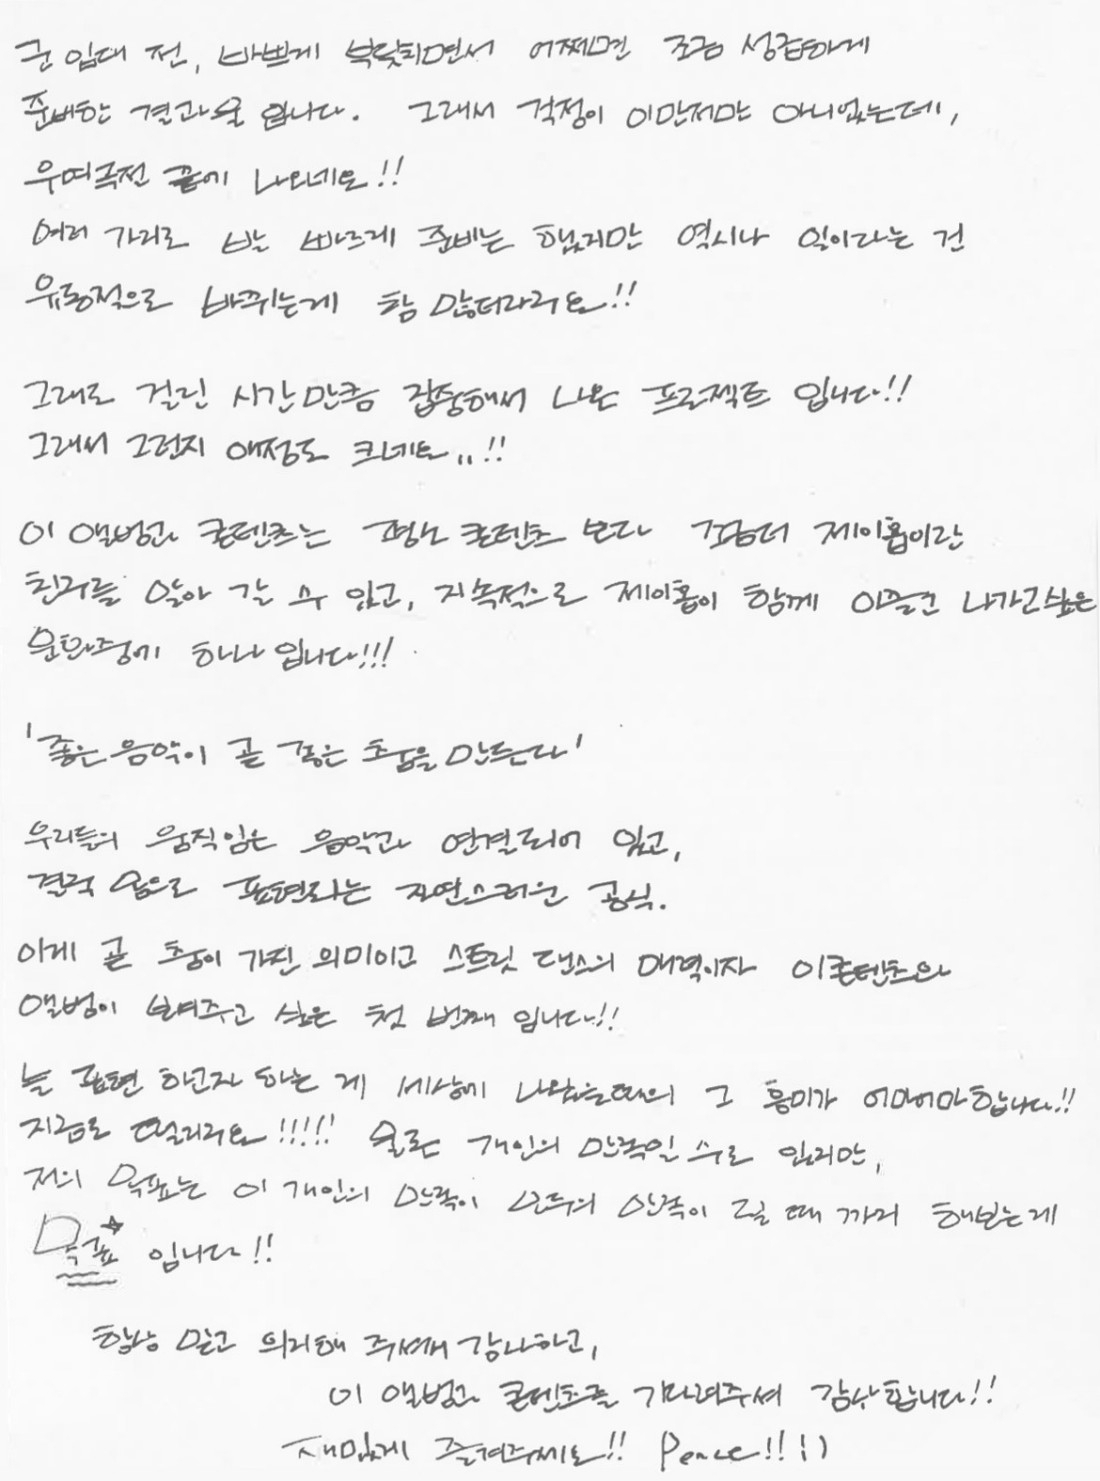 군 입대 전, 바쁘게 부딪히면서 어쩌면 조금 성급하게
준비한 결과물 입니다. 그래서 걱정이 이만저만 아니였는데,
우여곡전 끝에 나오네요!!
여러 가지로 발 빠르게 준비는 했지만 역시나 일이라는 건
유동적으로 바뀌는게 참 많더라구요!!
그래도 걸린 시간 만큼 집중해서 나온 프로젝트 입니다!!
그래서 그런지 애정도 크네요..!!
이 앨범과 콘텐츠는 평소 콘텐츠 보다 조금더 제이홉이란
친구를 알아 갈 수 있고, 지속적으로 제이홉이 함께 이끌고 나가고싶은
문화중에 하나 입니다!!!
'좋은 음악이 곧 좋은 춤을 만든다'
우리들의 움직임은 음악과 연결되어 있고,
결국 몸으로 표현되는 자연스러운 공식.
이게 곧 춤이 가진 의미이고 스트릿 댄스의 매력이자 이콘텐츠와
앨범이 보여주고 싶은 첫 번째 입니다!!
늘 표현 하고자 하는 게 세상에 나왔을때의 그 흥미가 어마어마합니다!!
지금도 떨리구요!!!!! 물론 개인의 만족일 수도 있지만,
저의 목표는 이 개인의 만족이 모두의 만족이 될 때 까지 해보는게
목표 입니다!!
항상 믿고 의지해 주셔서 감사하고,
이 앨범과 콘텐츠를 기다려주셔 감사합니다!!
재밌게 즐겨주세요!! Peace!! :)